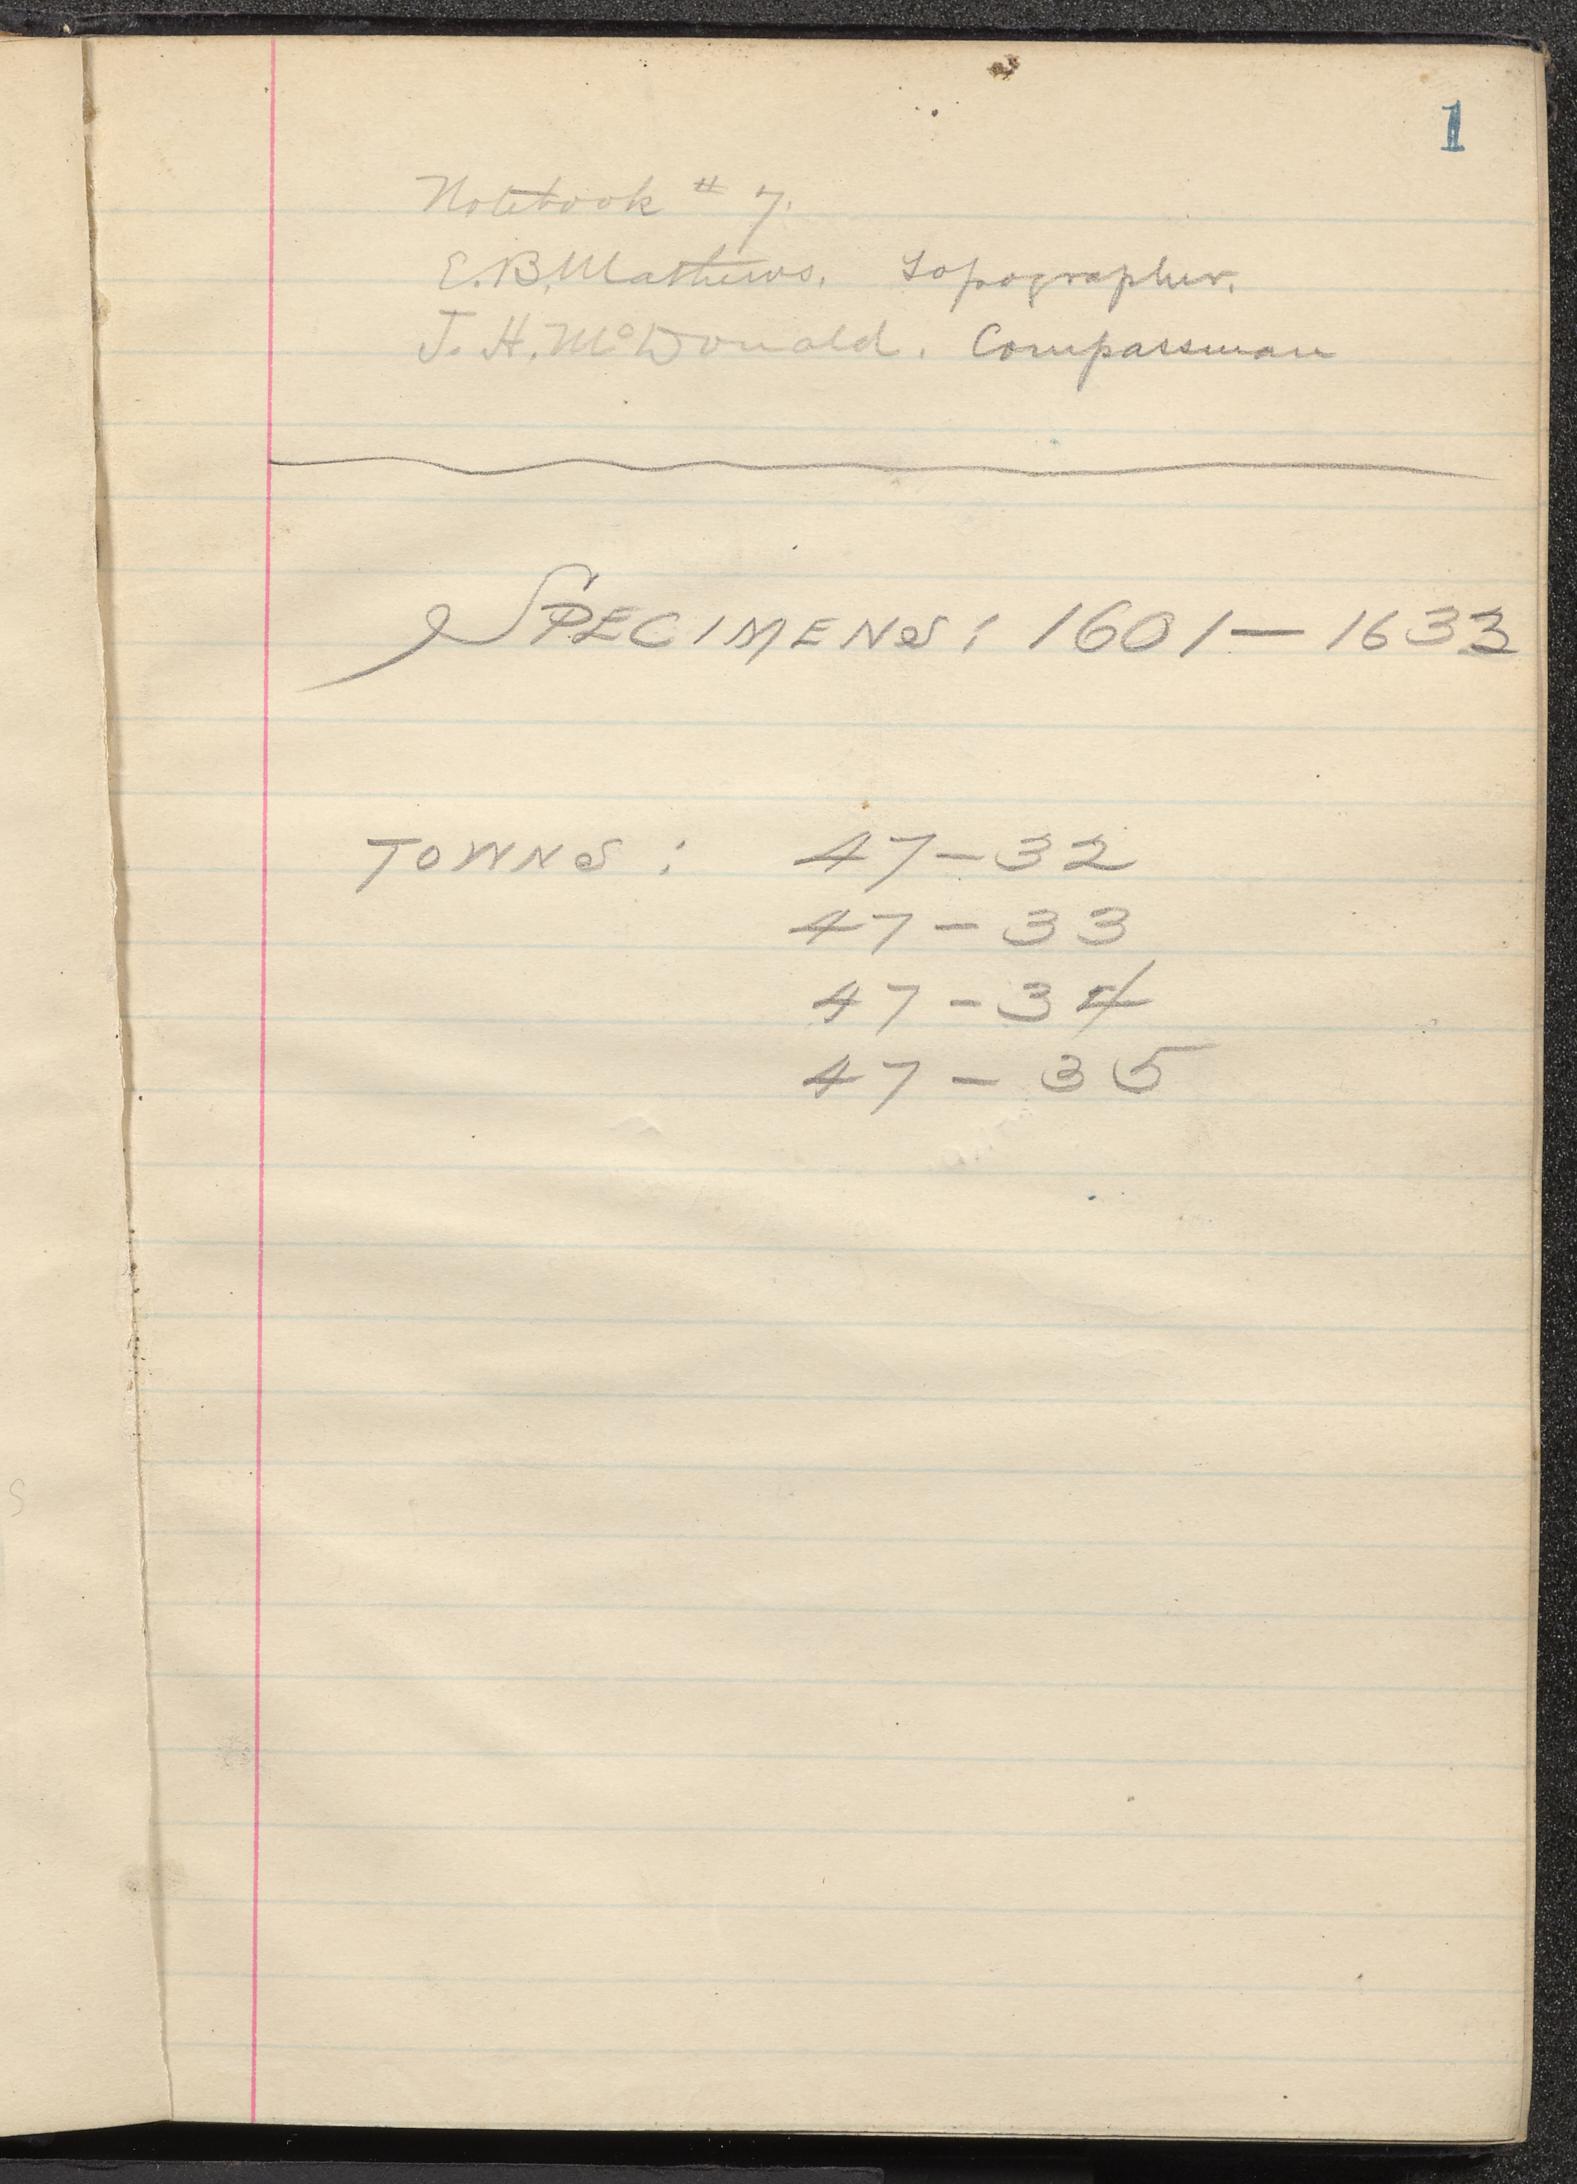 1
Notebook # 7.
E. B. Mathews. Topographer.
J. H. McDonald. Compassman
SPECIMENS: 1601—1633
TOWNS: 47-32
47-33
47-34
47-35